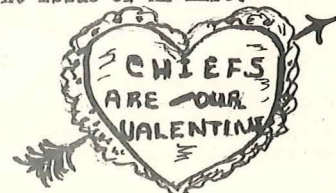 CHIEFS
ARE OUR
VALENTINE